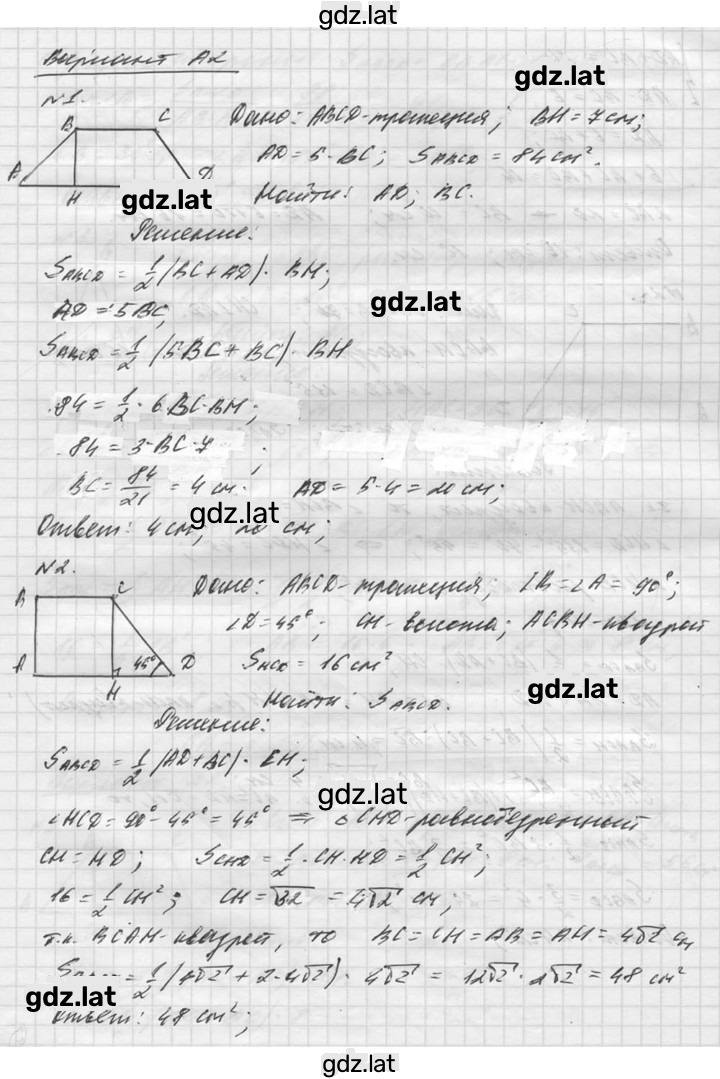 gdz.lat
Вариант А2
gdz.lat
№1.
B C
A D
H
gdz.lat
Дано: ABCD-трапеция; BH=7см;
AD=5·BC; SABCD=84см².
Найти: AD; BC.
Решение:
SABCD=1/2(BC+AD)·BH;
AD=5BC;
gdz.lat
SABCD=1/2(5BC+BC)·BH
84=1/2·6BC·BH;
84=3·BC·7;
BC=84/21=4см. AD=5·4=20см;
gdz.lat
Ответ: 4см; 20см;
№2.
B C
A H D
45°
Дано: ABCD-трапеция; ∠B=∠A=90°;
∠D=45°; CH-высота; ACBH-квадрат
SHCD=16см²
gdz.lat
Найти: SABCD.
Решение:
SABCD=1/2(AD+BC)·CH;
gdz.lat
∠HCD=90°-45°=45° ⇒ △CHD-равнобедренный
CH=HD; SCHD=1/2·CH·HD=1/2CH²;
16=1/2CH²; CH=√32=4√2 см;
т.к. BCAH-квадрат, то BC=CH=AB=AH=4√2 см
=1/2(4√2+2·4√2)·4√2=12√2·2√2=48см²
gdz.lat
Ответ: 48см²;
gdz.lat